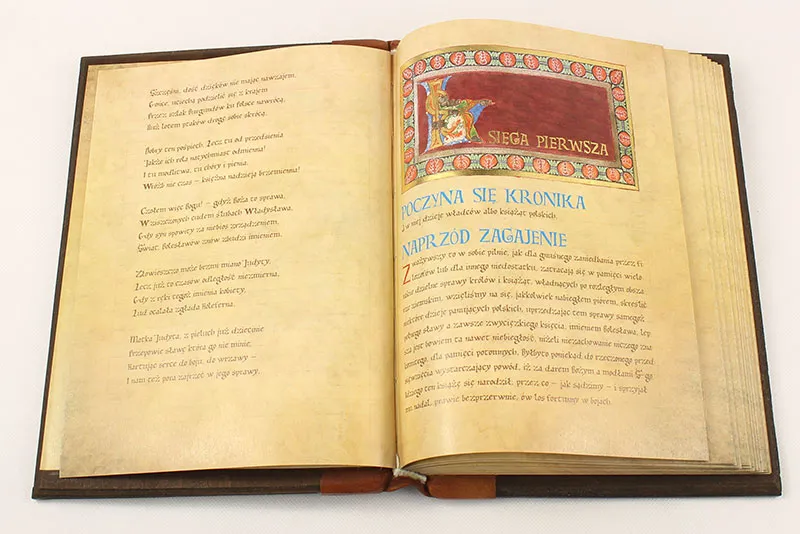 Szczęsna, dość dzięków nie mając nawzajem,
Goniec, uciechą podzielić się z krajem
Przez szlak Burgundów ku Polsce nawrócą,
Niż lotem ptaków drogę sobie skrócą.
Dobry ten pośpiech, lecz tu od przednienia
Jakże ich rola natychmiast odmienna!
I tu modlitwa, tu chóry i pienia.
Wiőż nie czas – księżna nadzieją brzemienna!
Czołem więc Bogu! – gdyż Boża to sprawa,
Wzruszonych cudem ślubach Władysława,
Gdy syn spowity za niebios zarządzeniem,
Świat, Bolesławów znów zbudzi imieniem.
Złowieszczo może brzmi miano Judyty,
Lecz już to czasów odległość niezmierna,
Gdy z ręki tegoż imienia kobiety,
Lud ocalała zgłada Holoferna.
Matka Judyta, z pieluch już dziecinę
Przepowie sławę która go nie minie,
Hartując serce do boju, do wrzawy –
I nam też pora zajrzeć w jego sprawy.
KSIĘGA PIERWSZA
POCZYNA SIĘ KRONIKA
I w niej dzieje władców albo książąt polskich.
NAPRZÓD ZAGAJENIE
Zważywszy to w sobie pilnie, jak dla gnuśnego zaniedbania przez fi
lozofów lub dla innego niedostatku, zatracają się w pamięci wielo
rakie dzielne sprawy królów i książąt, władnących po rozległym obsza
rze ziemskim, wzięliśmy na się, jakkolwiek nabiegłem piórem, skreślić
niektóre dzieje panujących polskich, uprzedzając tem sprawy samegoż
pełnego sławy a zawsze zwycięzkiego księcia, imieniem Bolesława, lep
szą jest bowiem ta nawet niebiegłość, niżeli niezachowanie niczego zna
komitego, dla pamięci potomnych. Byłbyć poniekąd do rzeczonego przed
sięwzięcia wystarczający powód, iż za darem Bożym a modłami Ś-go
Idziego ten książę się narodził, przez co – jak sądzimy – i sprzyjał
mu nadal, prawie bezprzerwnie, ów los fortunny w bojach.